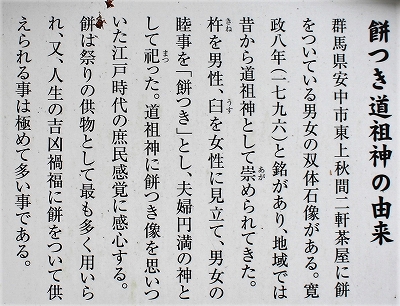 餅つき道祖神の由来
群馬県安中市東上秋間二軒茶屋に餅
をついている男女の双体石像がある。寛
政八年(一七九六)と銘があり、地域では
昔から道祖神として崇められてきた。
杵を男性、臼を女性に見立て、男女の
睦事を「餅つき」とし、夫婦円満の神と
して祀った。道祖神に餅つき像を思いつ
いた江戸時代の庶民感覚に感心する。
餅は祭りの供物として最も多く用いら
れ、又、人生の吉凶禍福に餅をついて供
えられる事は極めて多い事である。